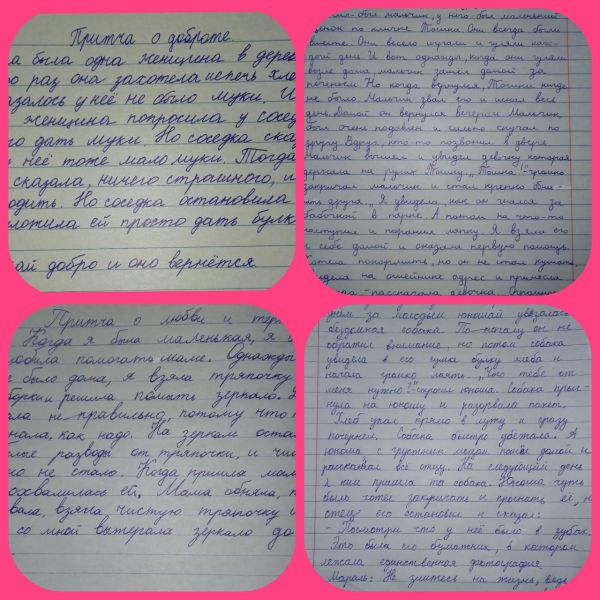 Притча о доброте.
а была одна женщина в дерев
о раз она захотела испечь хле
азалось у неё не было муки. И
женщина попросила у сосед
го дать муки. Но соседка ска
неё тоже мало муки. Тогда
сказала, ничего страшного, и
одить. Но соседка остановила
еложила ей просто дать булк
ай добро и оно вернётся
был мальчик, у него был маленький
енок по кличке Тошка. Они всегда были
вместе. Они весело играли и гуляли каж-
дый день. И вот однажды, когда они гуляли
возле дома, мальчик зашёл домой за
печеньем. Но когда вернулся, Тошки нигде
не было. Мальчик звал его и искал весь
день. Домой он вернулся вечером. Мальчик
был очень подавлен и сильно скучал по
другу. Вдруг, кто-то позвонил в двери.
Мальчик вышел и увидел девочку которая
держала на руках Тошку. „Тошка!"-громко
закричал мальчик и стал крепко обни-
мать друга. „Я увидела, как он гнался за
бабочкой в парке. А потом на что-то
наступил и поранил лапку. Я взяла его
к себе домой и оказала первую помощь.
Хотела покормить, но он не стал кушать.
видела на ошейнике адрес и принесла
рассказала девочка.
Притча о любви и терп
Когда я была маленькая, я
помогать маме. Однажды
е было дома, я взяла тряпочку
уборки и решила помыть зеркало.
ла не правильно, потому что
нала, как надо. На зеркале оста
разводы от тряпочки, и чис
но не стало. Когда пришла ма
охвалилась ей. Мама обняла, п
вала, взяла чистую тряпочку и
со мной вытерала зеркало до
за молодым юношей увязалась
бездомная собака. По-началу он не
обратил внимание, но потом собака
увидела в его сумке булку хлеба и
начала громко лаять. „Что тебе от
меня нужно?"-спросил юноша. Собака прыг-
нула на юношу и разорвала пакет.
Хлеб упал прямо в лужу и сразу
почернел. Собака быстро убежала. А
юноша с грустным лицом пошёл домой и
рассказал всё отцу. На следующий день
к ним пришла та собака. Юноша чуть
было хотел закричать и прогнать её, но
отец его остановил и сказал:
- Посмотри что у неё было в зубах.
Это был его бумажник, в котором
лежала единственная фотография
Мораль: Не злитесь на жизнь, ведь